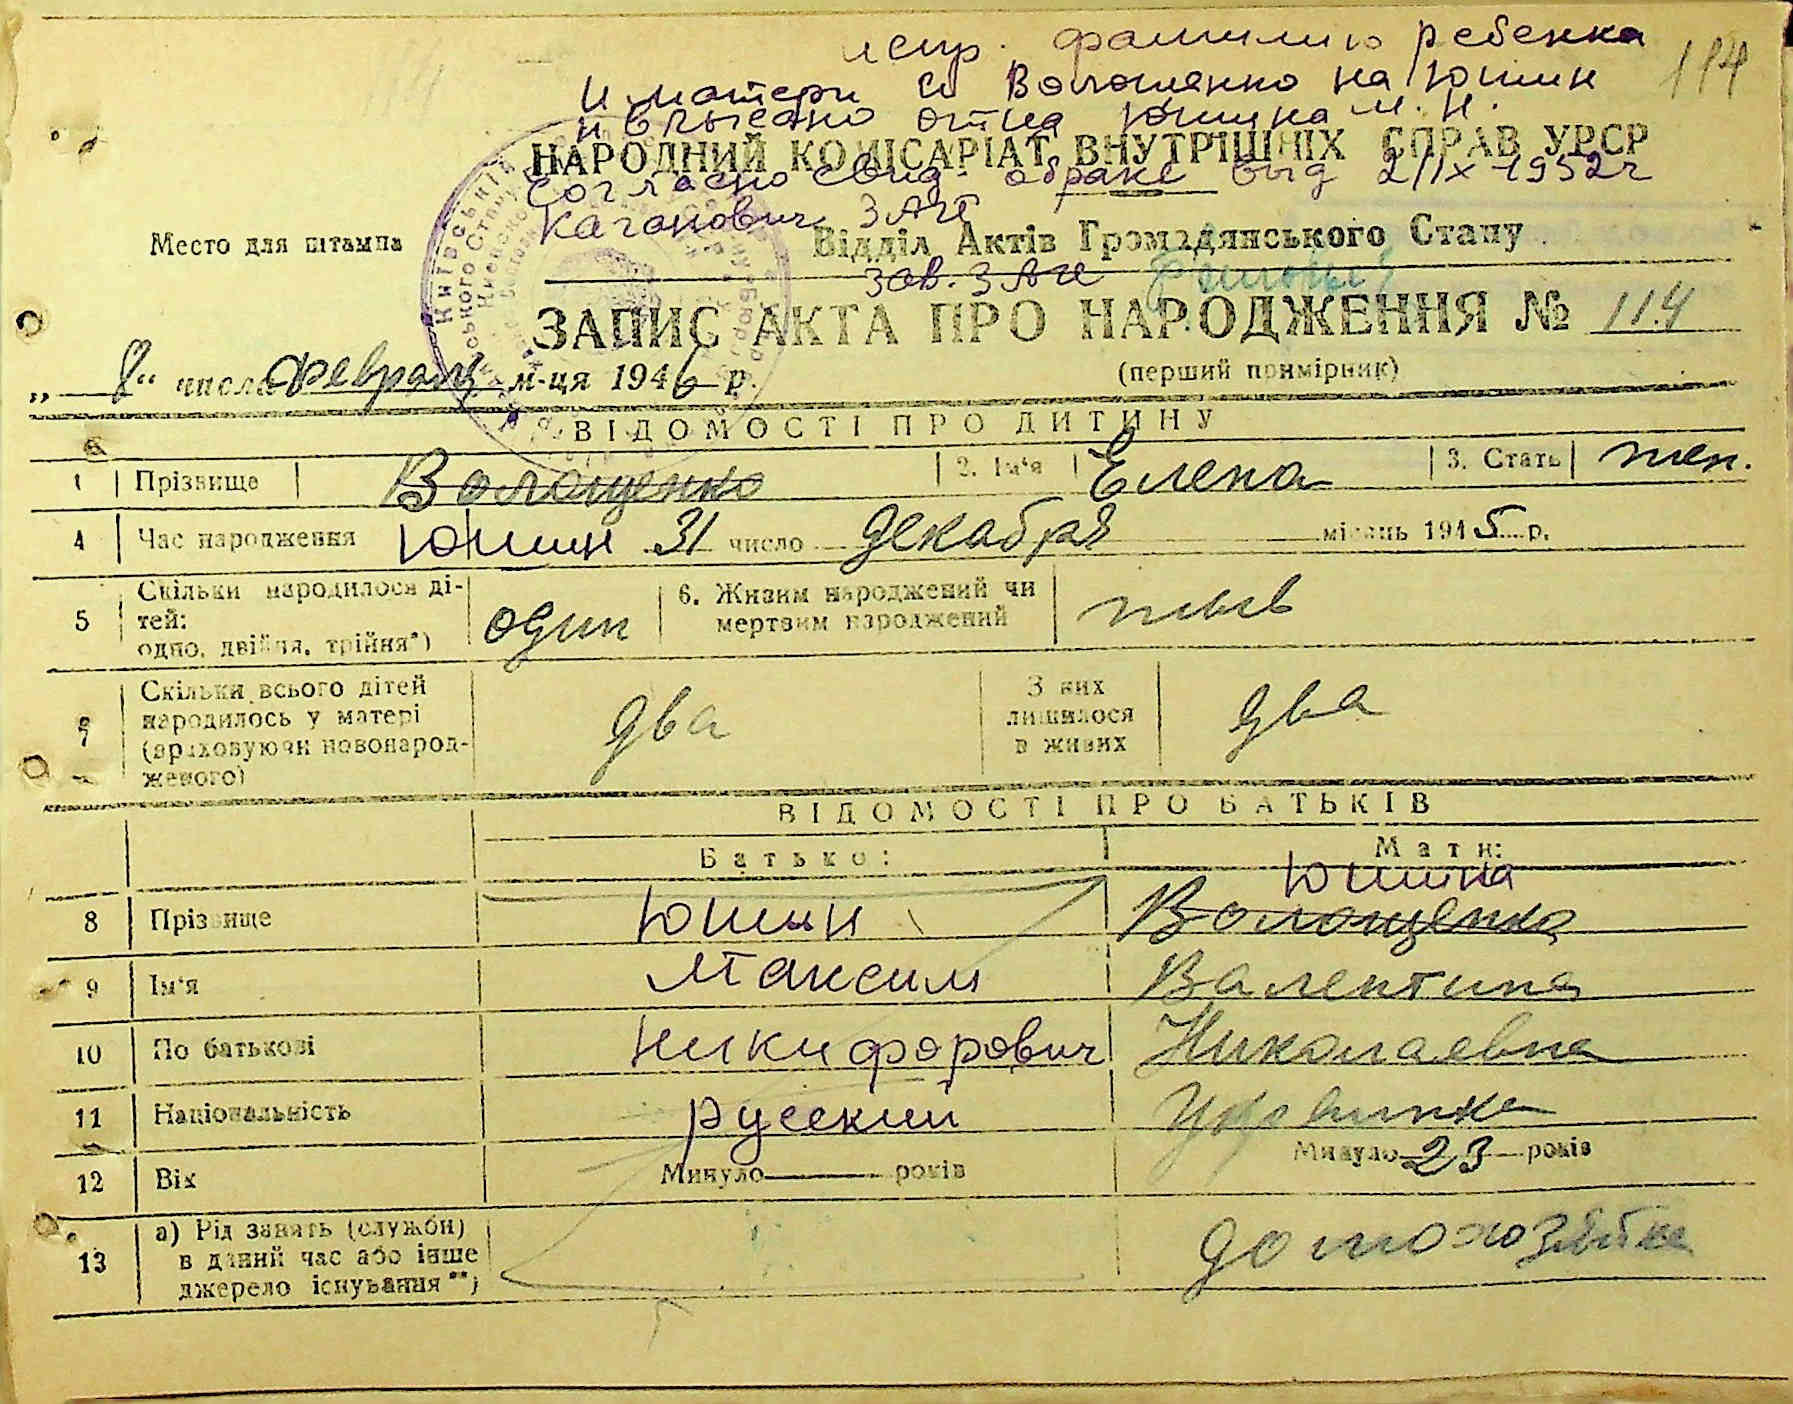 испр. фамилию ребенка 114
и матери с Волощенко на Юшин
и вписано отца Юшина М. Н.
НАРОДНИЙ КОМІСАРІАТ ВНУТРІШНІХ СПРАВ УРСР
согласно свид. о браке выд 2/IX-1952г
Каганович. ЗАГС
Место для штампа Відділ Актів Громадянського Стану
Зав. ЗАГС
ЗАПИС АКТА ПРО НАРОДЖЕННЯ № 114
„ 8 “ числа февраля м-ця 1946 р. (перший примірник)
ВІДОМОСТІ ПРО ДИТИНУ
1 Прізвище Волощенко 2. Ім'я Елена 3. Стать жен.
4 Час народження Юшин 31 число декабря місяць 1945 р.
5 Скільки народилося ді-
тей:
одно, двійня, трійня*) один 6. Живим народжений чи
мертвим народжений жив
7 Скільки всього дітей
народилось у матері
(враховуючи новонарод-
женого) два З них
лишилося
в живих два
ВІДОМОСТІ ПРО БАТЬКІВ
Батько: Мати:
Юшина
8 Прізвище Юшин Волощенко
9 Ім'я Максим Валентина
10 По батькові Никифорович Николаевна
11 Національність русский Украинка
12 Вік Минуло років Минуло 23 років
13 а) Рід занять (служби)
в даний час або інше
джерело існування**) домохозяйка